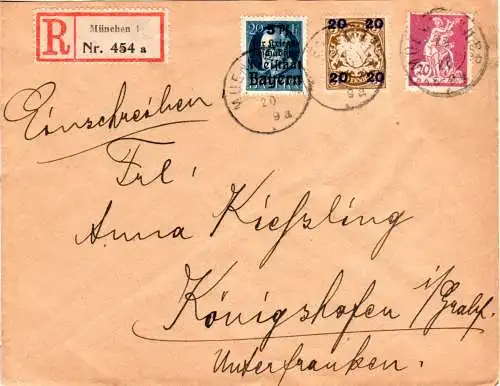 München 1
R
Nr. 454 a
20
Bayern
20 20
20 20
20
MUE
20
9 a
9 a
Einschreiben
Frl.
Anna Kießling
Königshofen i/Grabf.
Unterfranken.